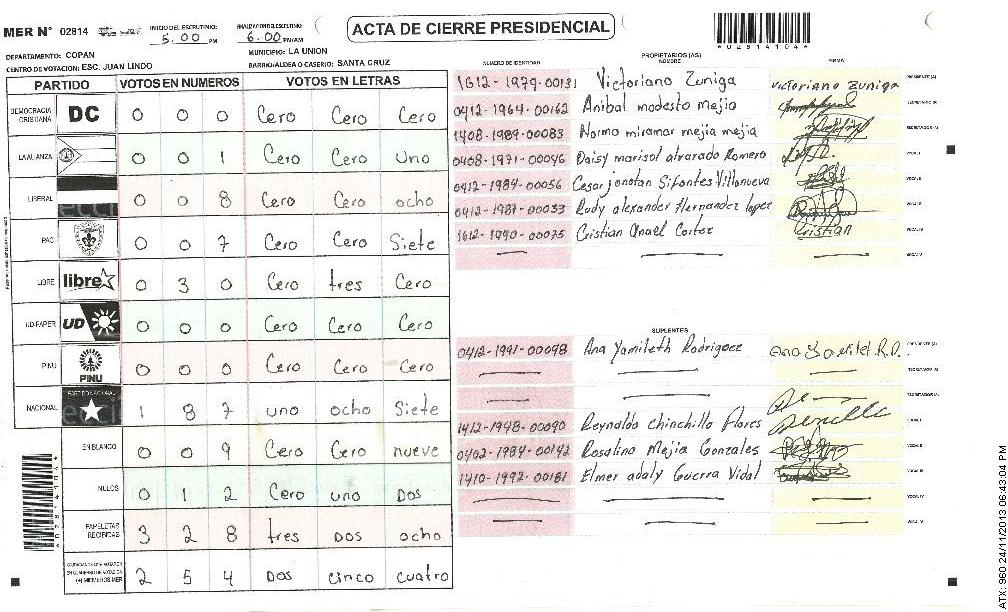 MER Nº 02814
INICIO DEL ESCRUTINIO: 5.00 PM
FINALIZACION DEL ESCRUTINIO: 6.00 PM/AM
ACTA DE CIERRE PRESIDENCIAL
DEPARTAMENTO: COPAN
MUNICIPIO: LA UNION
CENTRO DE VOTACION: ESC. JUAN LINDO
BARRIO/ALDEA O CASERIO: SANTA CRUZ
PARTIDO VOTOS EN NUMEROS VOTOS EN LETRAS
DEMOCRACIA CRISTIANA DC 0 0 0 Cero Cero Cero
LA ALIANZA 0 0 1 Cero Cero uno
LIBERAL 0 0 8 Cero Cero ocho
PAC 0 0 7 Cero Cero Siete
LIBRE libre 0 3 0 Cero tres Cero
UD-FAPER UD 0 0 0 Cero Cero Cero
PINU PINU 0 0 0 Cero Cero Cero
NACIONAL PARTIDO NACIONAL 1 8 7 uno ocho Siete
EN BLANCO 0 0 9 Cero Cero nueve
NULOS 0 1 2 Cero uno Dos
PAPELETAS RECIBIDAS 3 2 8 tres Dos ocho
CIUDADANOS QUE VOTARON EN CUADERNO DE VOTACION (+) MIEMBROS MER 2 5 4 Dos cinco cuatro
02814104
PROPIETARIOS (AS)
NUMERO DE IDENTIDAD NOMBRE FIRMA
1612-1979-00131 Victoriano Zuniga victoriano Zuniga PRESIDENTE (A)
0412-1964-00162 Anibal modesto mejia SECRETARIO (A)
1408-1989-00083 Norma miramar mejia mejia ESCRUTADOR (A)
0408-1971-00046 Daisy marisol alvarado Romero VOCAL I
0412-1984-00056 Cesar jonatan Sifontes Villanueva VOCAL II
0412-1987-00033 Rudy alexander Hernandez lopez VOCAL III
1612-1990-00075 Cristian Anael Cortez Cristian VOCAL IV
VOCAL V
SUPLENTES
0412-1991-00098 Ana Yamileth Rodriguez PRESIDENTE (A)
SECRETARIO (A)
ESCRUTADOR (A)
1412-1948-00090 Reynaldo chinchilla Flores VOCAL I
0402-1984-00142 Rosalino Mejia Gonzales VOCAL II
1410-1992-00181 Elmer adaly Guerra Vidal VOCAL III
VOCAL IV
VOCAL V
ATX: 960 24/11/2013 06:43:04 PM